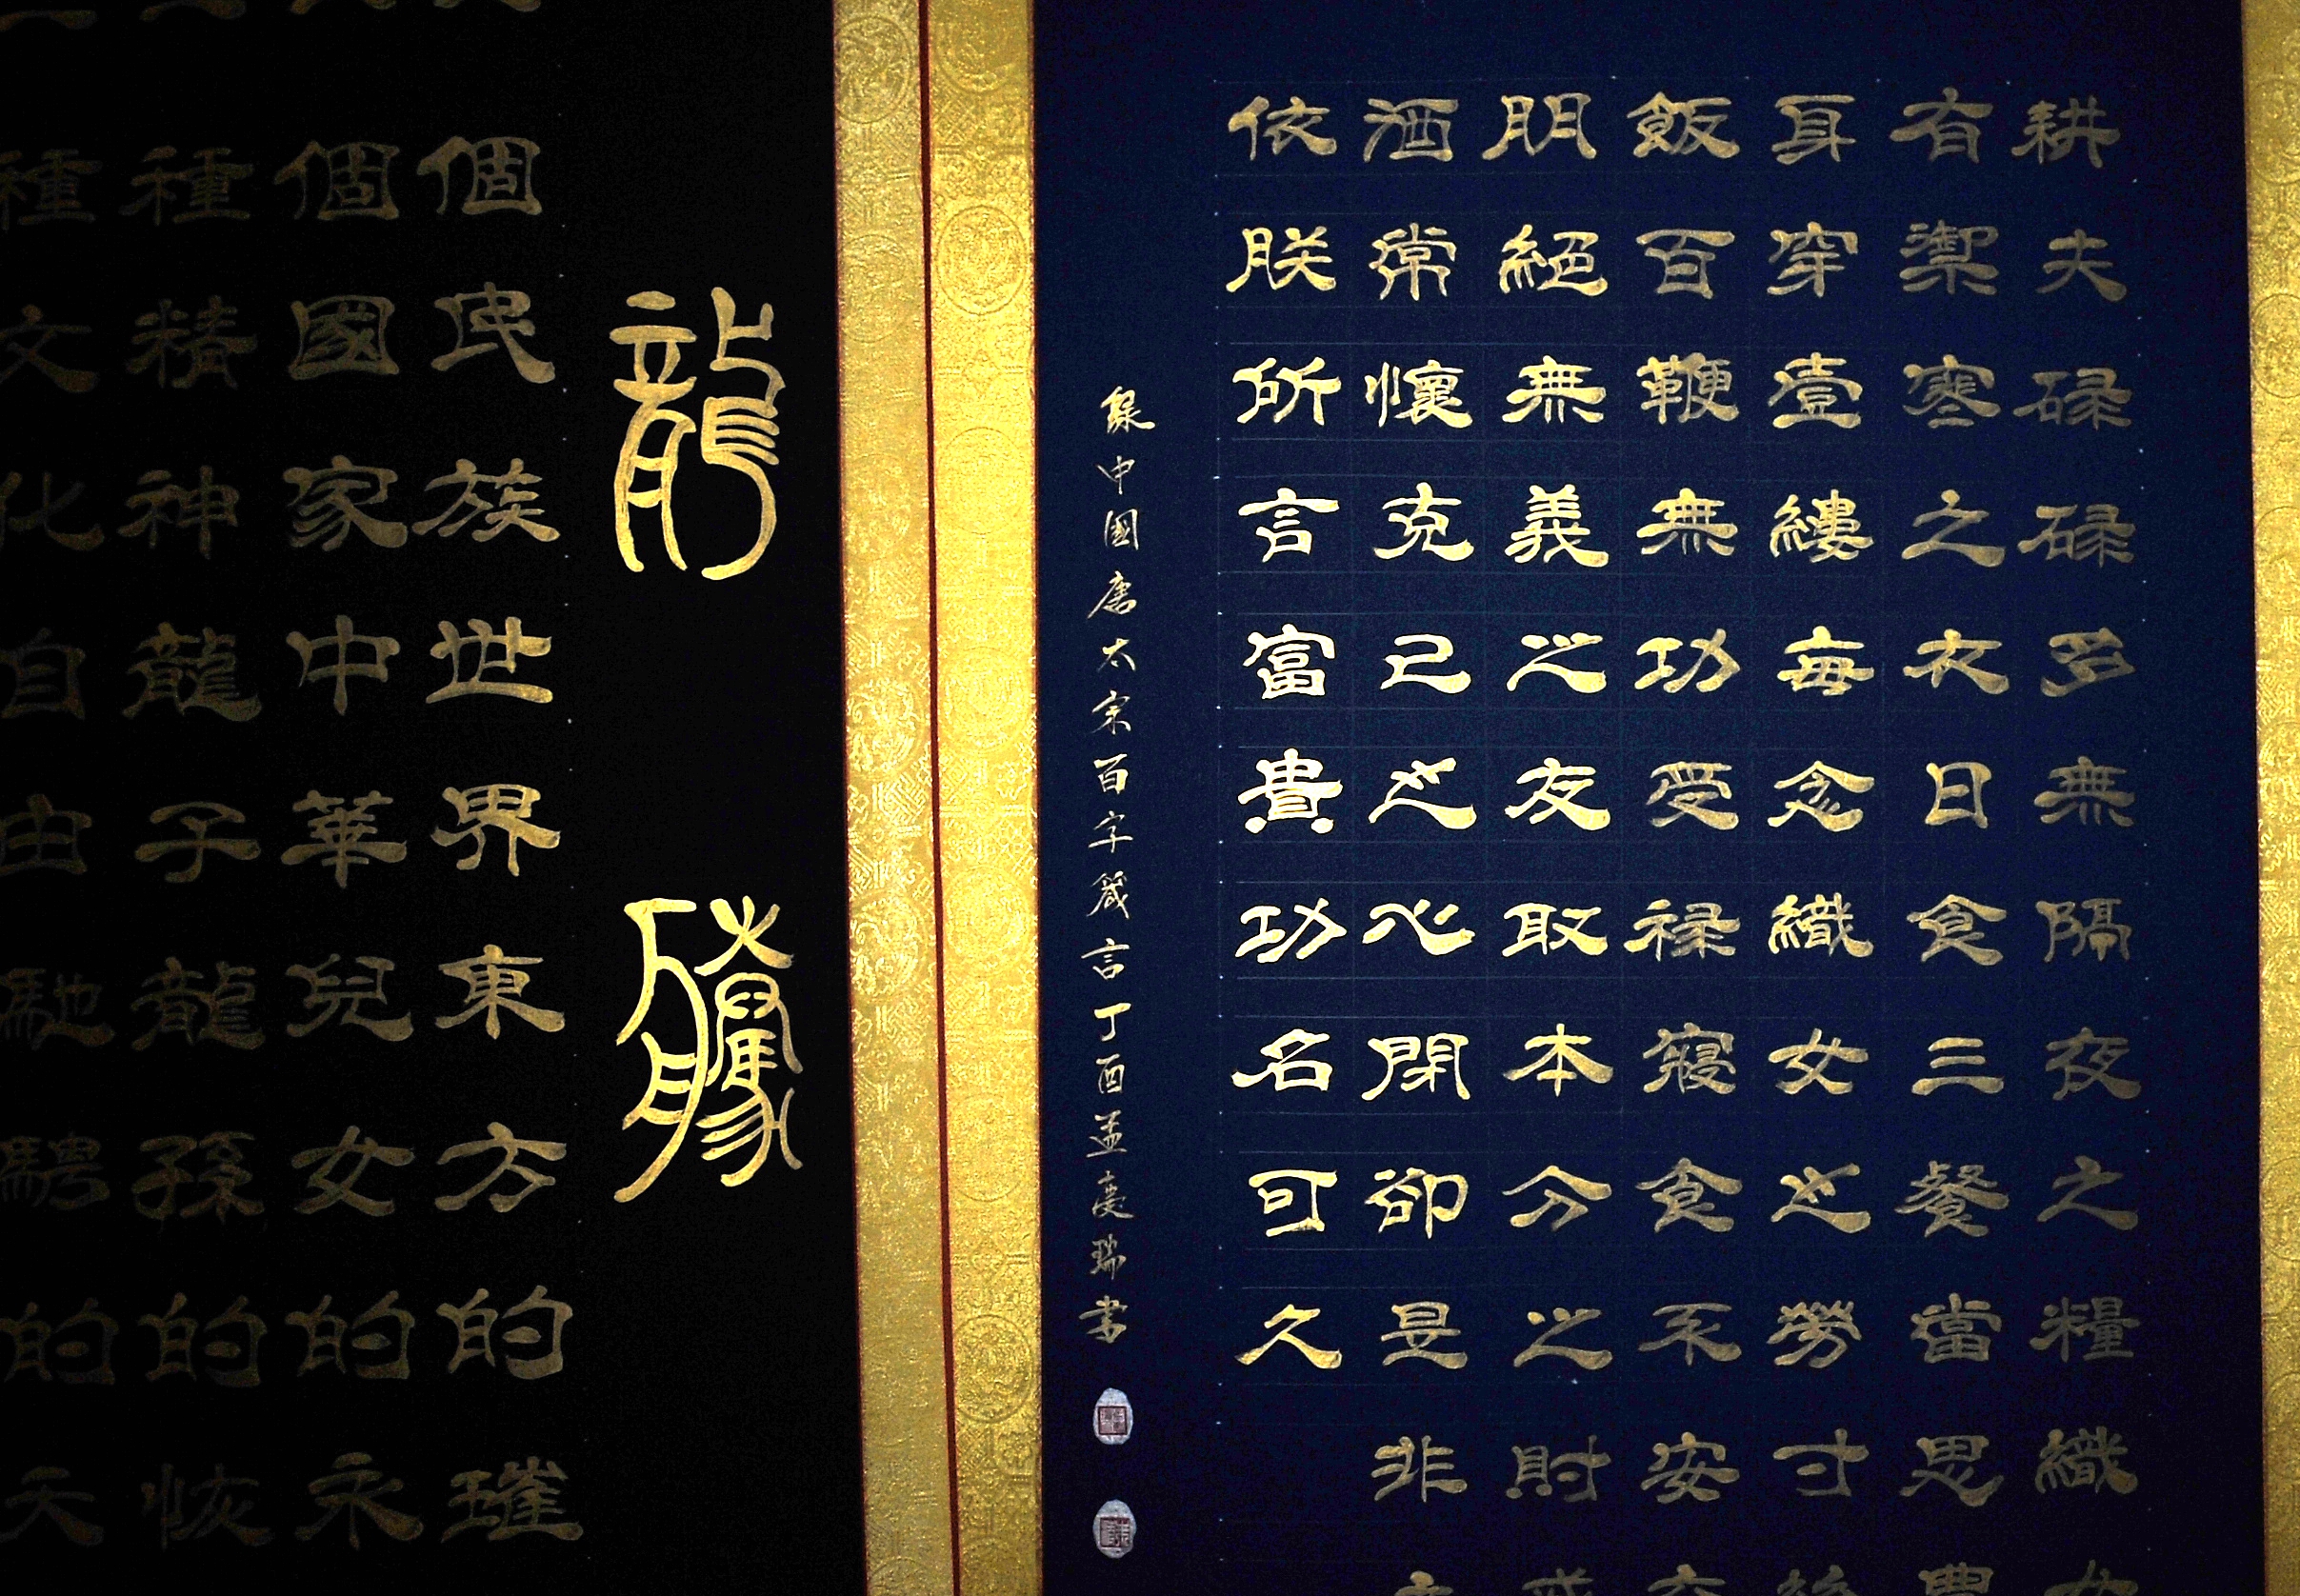 耕夫碌碌多無隔夜之糧織
有禦寒之衣日食三餐當思
身穿壹縷每念織女之勞寸
飯百鞭無功受禄寢食不安
朋絕無義之友取本分之財
酒常懷克己之心閉卻是非
依朕所言富貴功名可久
錄中國唐太宗百字箴言丁酉孟慶瑞書
龍騰
個民族世界東方的璀
個國家中華兒女的永
種精神龍子龍孫的恢
種文化自由馳騁的天